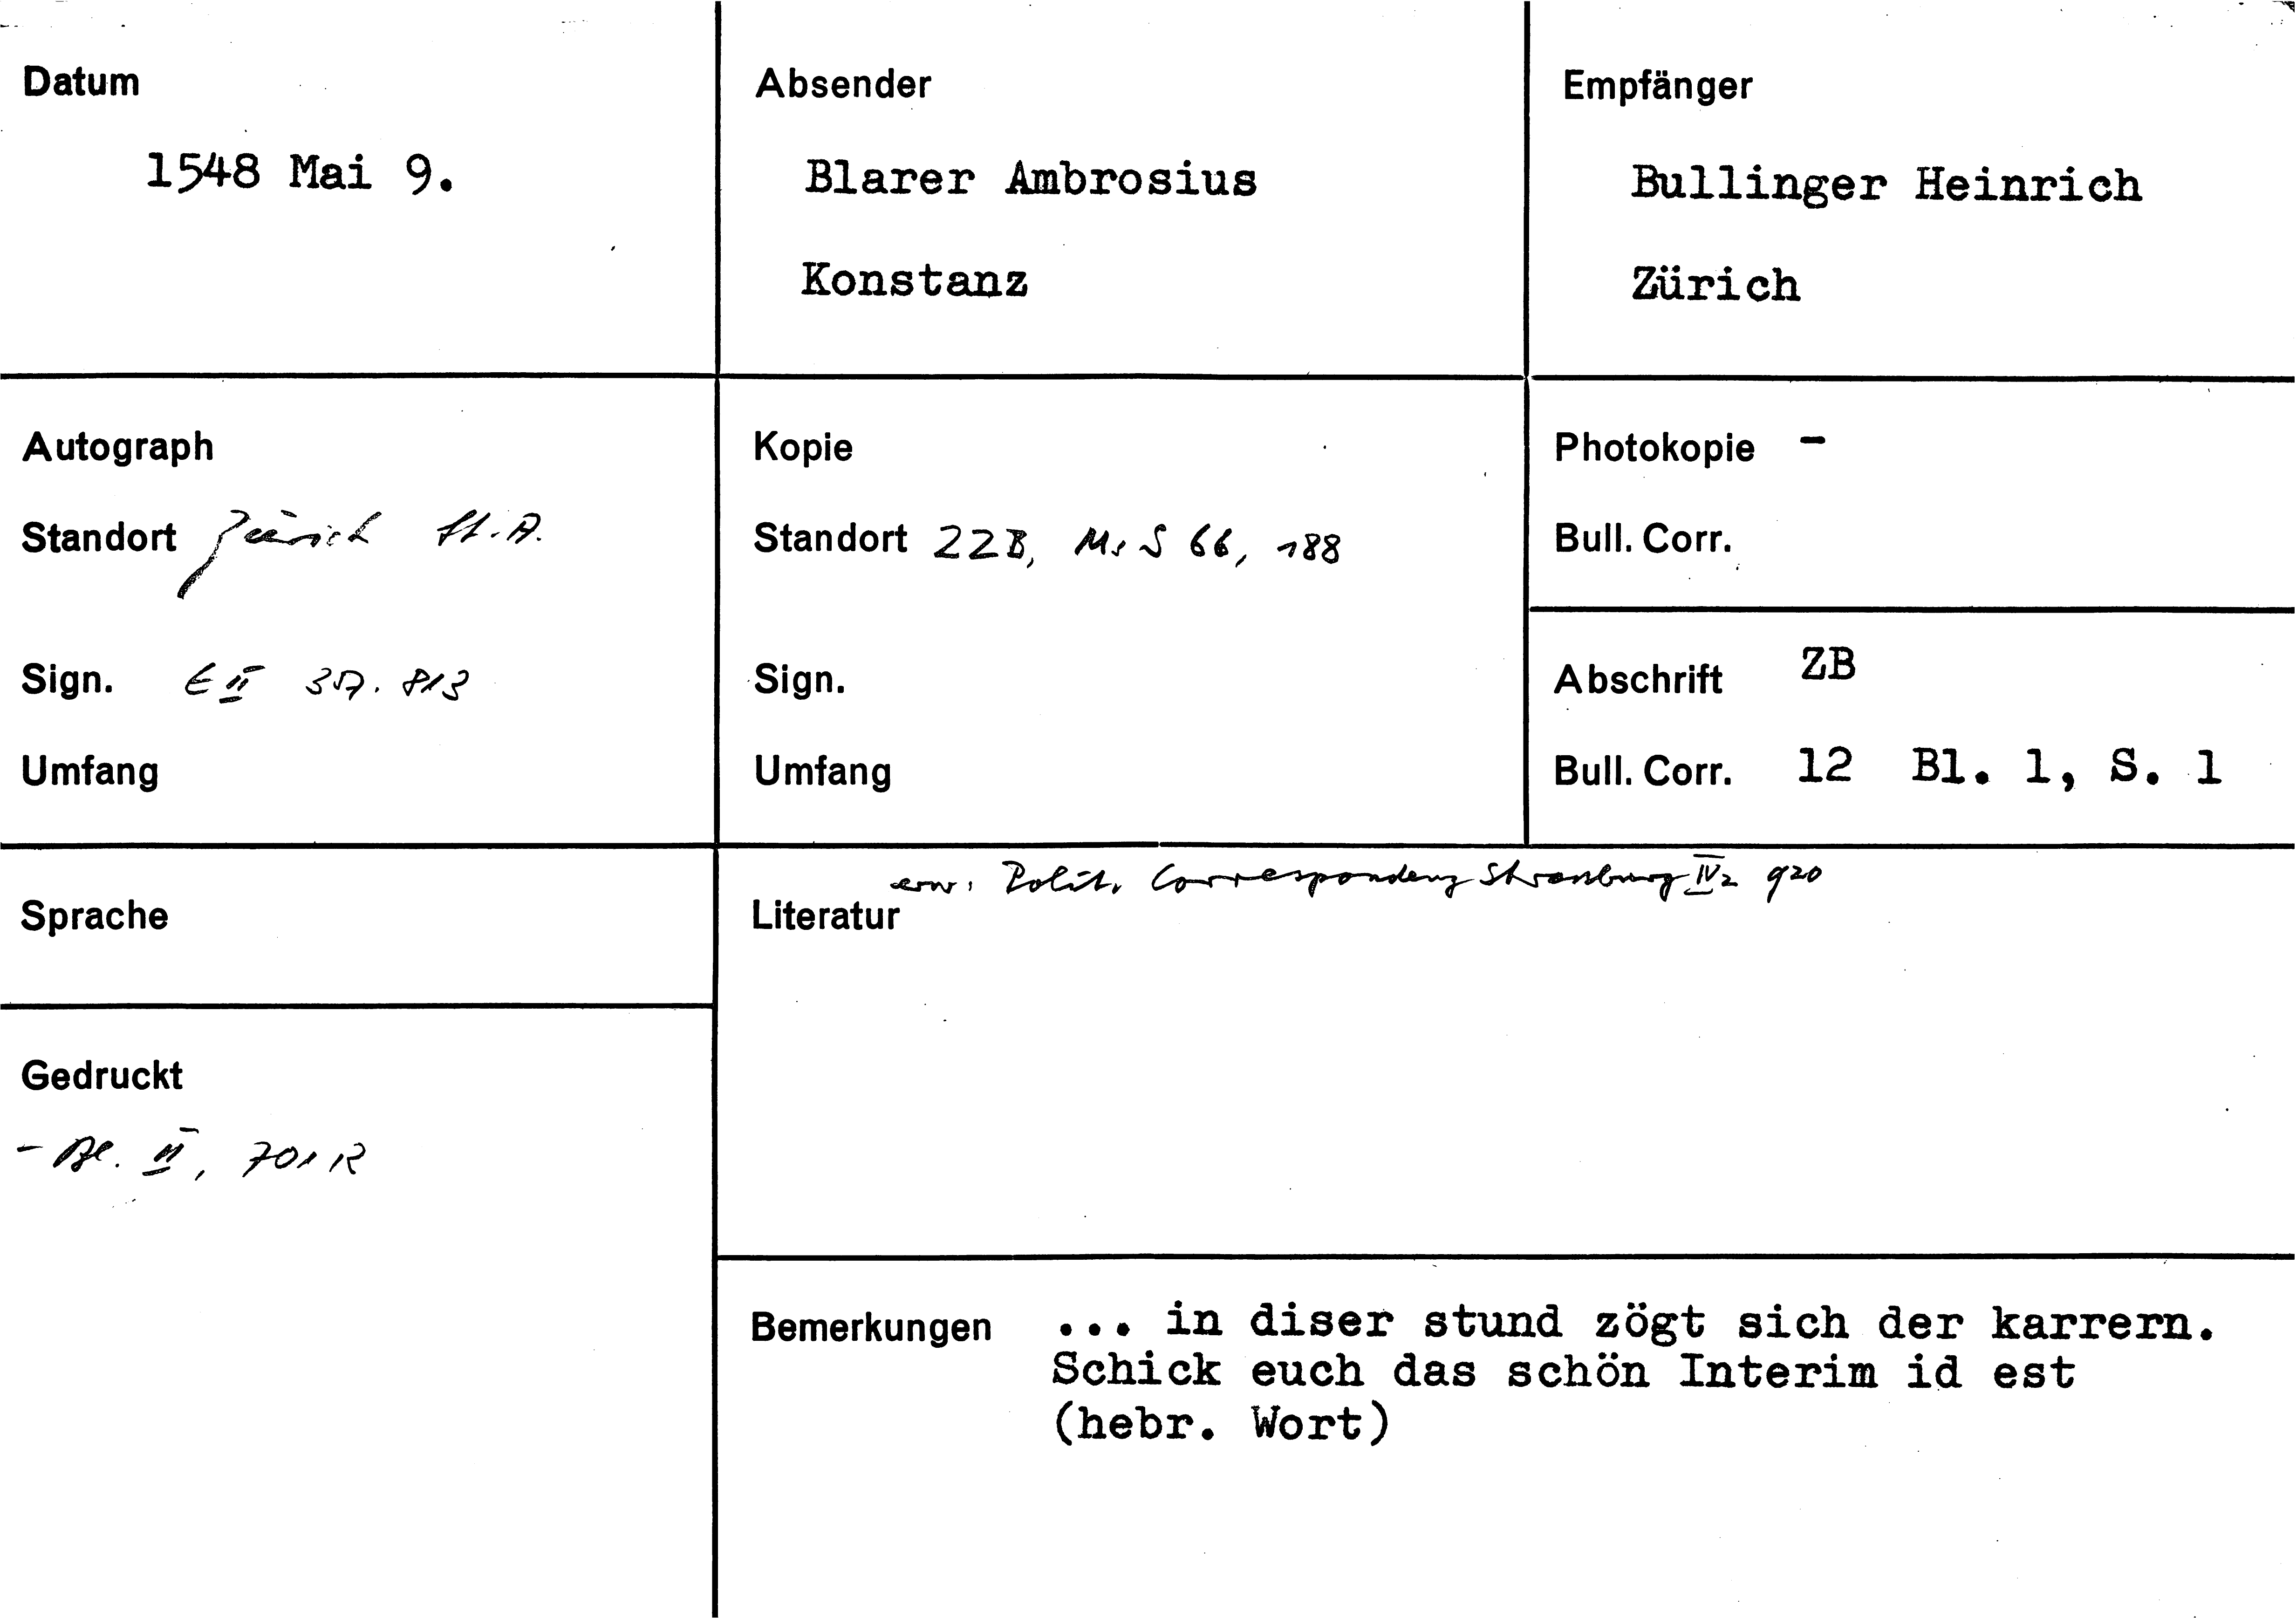 Datum
1548 Mai 9.
Absender
Blarer Ambrosius
Konstanz
Empfänger
Bullinger Heinrich
Zürich
Autograph
Standort Zürich St.A.
Sign. E II 357. 813
Umfang
Kopie
Standort ZZB, Ms S 66, 188
Sign.
Umfang
Photokopie -
Bull. Corr.
Abschrift ZB
Bull. Corr. 12 Bl. 1, S. 1
Sprache
Gedruckt
- Bl. II, 701 R
erw. Polit. Correspondenz Strassburg IV2 920
Literatur
Bemerkungen ... in diser stund zögt sich der karrern.
Schick euch das schön Interim id est
(hebr. Wort)